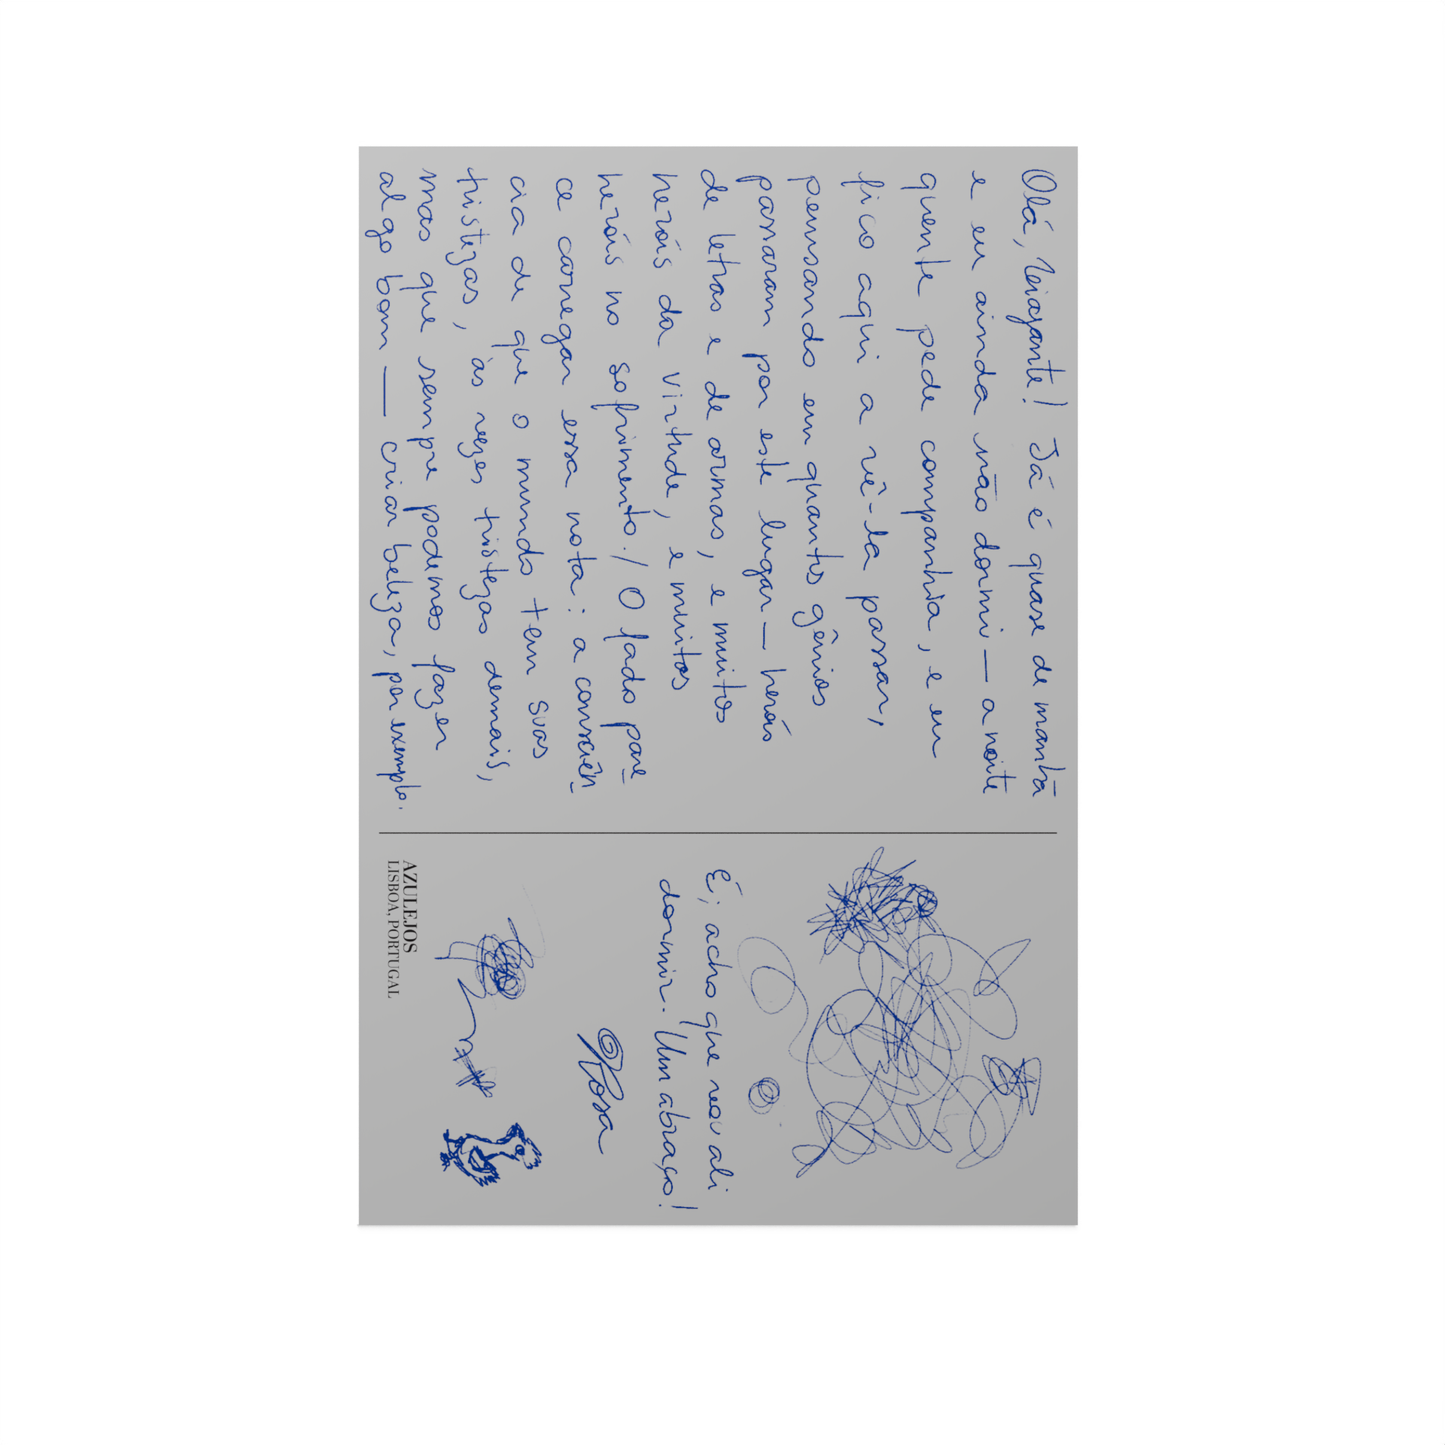 Olá, Viajante! Já é quase de manhã
e eu ainda não dormi — a noite
quente pede companhia, e eu
fico aqui a vê-la passar,
pensando em quantos gênios
passaram por este lugar — heróis
de letras e de armas, e muitos
heróis da virtude, e muitos
heróis no sofrimento. / O fado pare-
ce carregar essa nota: a consciên-
cia de que o mundo tem suas
tristezas, às vezes tristezas demais,
mas que sempre podemos fazer
algo bom — criar beleza, por exemplo.
É; acho que vou ali
dormir. Um abraço!
Rosa
AZULEJOS
LISBOA, PORTUGAL